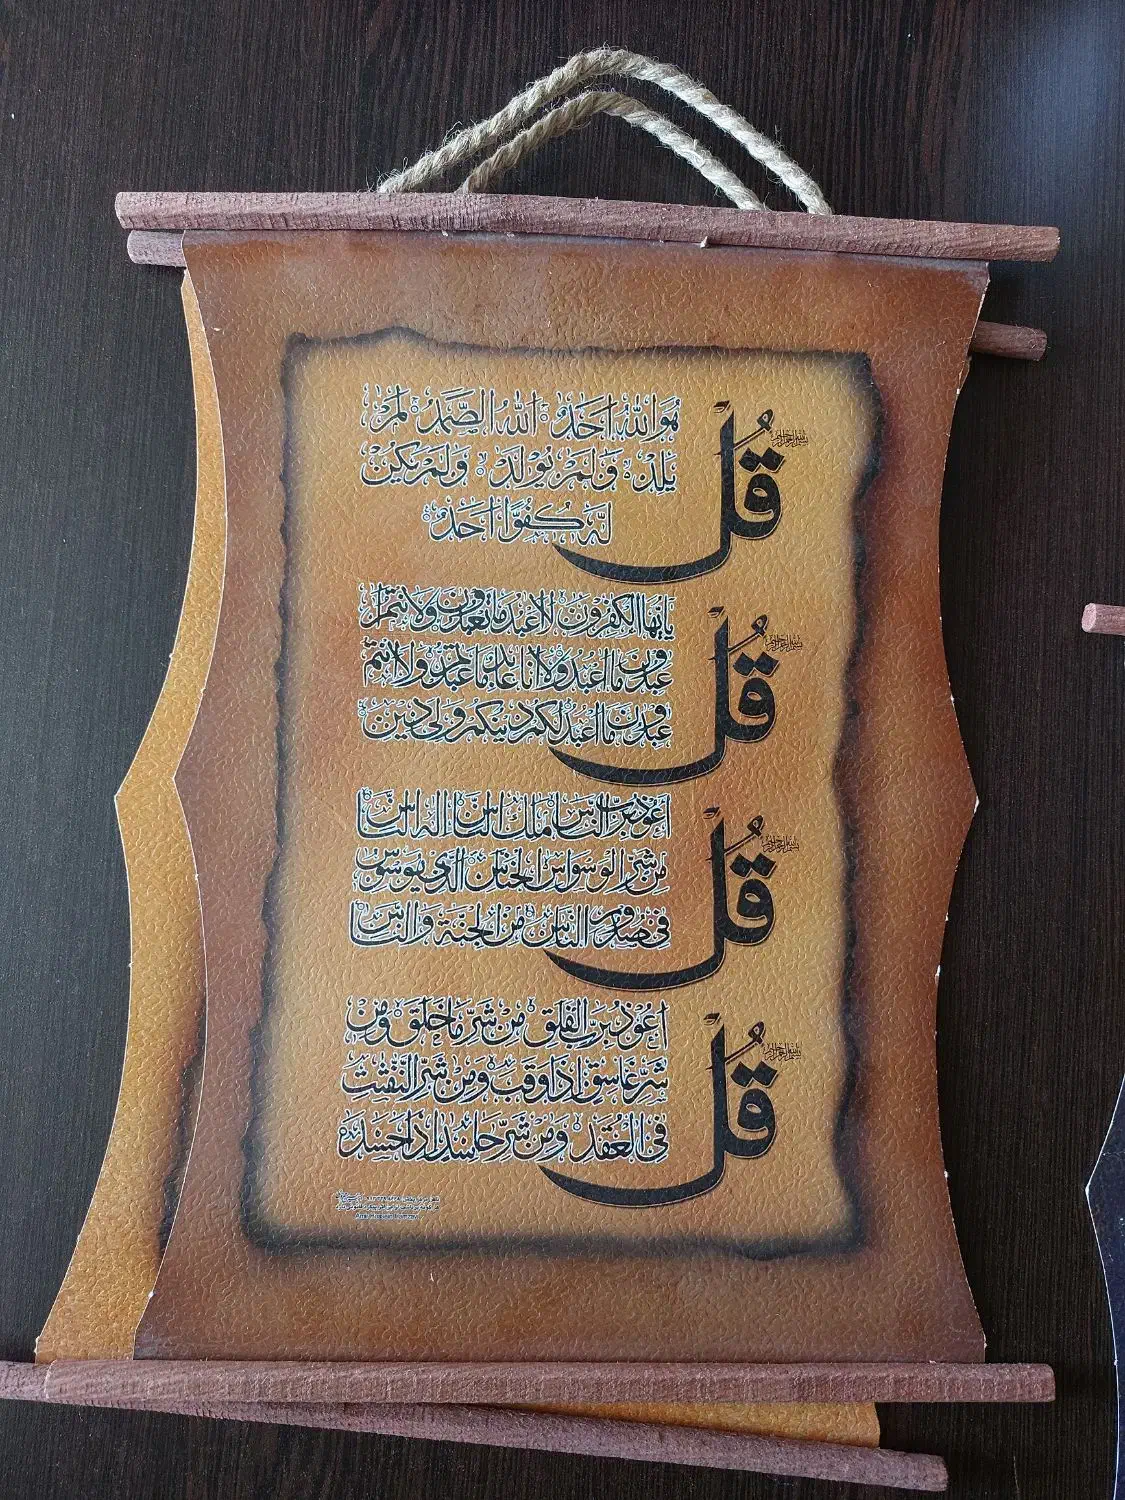 بسم الله الرحمن الرحیم
قُلْ
هُوَ اللّٰهُ اَحَدٌ اَللّٰهُ الصَّمَدُ لَمْ
یَلِدْ وَلَمْ یُولَدْ وَلَمْ یَکُنْ
لَهُ کُفُوًا اَحَدٌ
بسم الله الرحمن الرحیم
قُلْ
یٰاَیُّهَا الْکٰفِرُونَ لَا اَعْبُدُ مَا تَعْبُدُونَ وَلَا اَنْتُمْ
عٰبِدُونَ مَا اَعْبُدُ وَلَا اَنَا عَابِدٌ مَا عَبَدْتُمْ وَلَا اَنْتُمْ
عٰبِدُونَ مَا اَعْبُدُ لَکُمْ دِینُکُمْ وَلِیَ دِینِ
بسم الله الرحمن الرحیم
قُلْ
اَعُوذُ بِرَبِّ النَّاسِ مَلِکِ النَّاسِ اِلٰهِ النَّاسِ
مِنْ شَرِّ الْوَسْوَاسِ الْخَنَّاسِ اَلَّذِی یُوَسْوِسُ
فِی صُدُورِ النَّاسِ مِنَ الْجِنَّةِ وَالنَّاسِ
بسم الله الرحمن الرحیم
قُلْ
اَعُوذُ بِرَبِّ الْفَلَقِ مِنْ شَرِّ مَا خَلَقَ وَمِنْ
شَرِّ غَاسِقٍ اِذَا وَقَبَ وَمِنْ شَرِّ النَّفّٰثٰتِ
فِی الْعُقَدِ وَمِنْ شَرِّ حَاسِدٍ اِذَا حَسَدَ